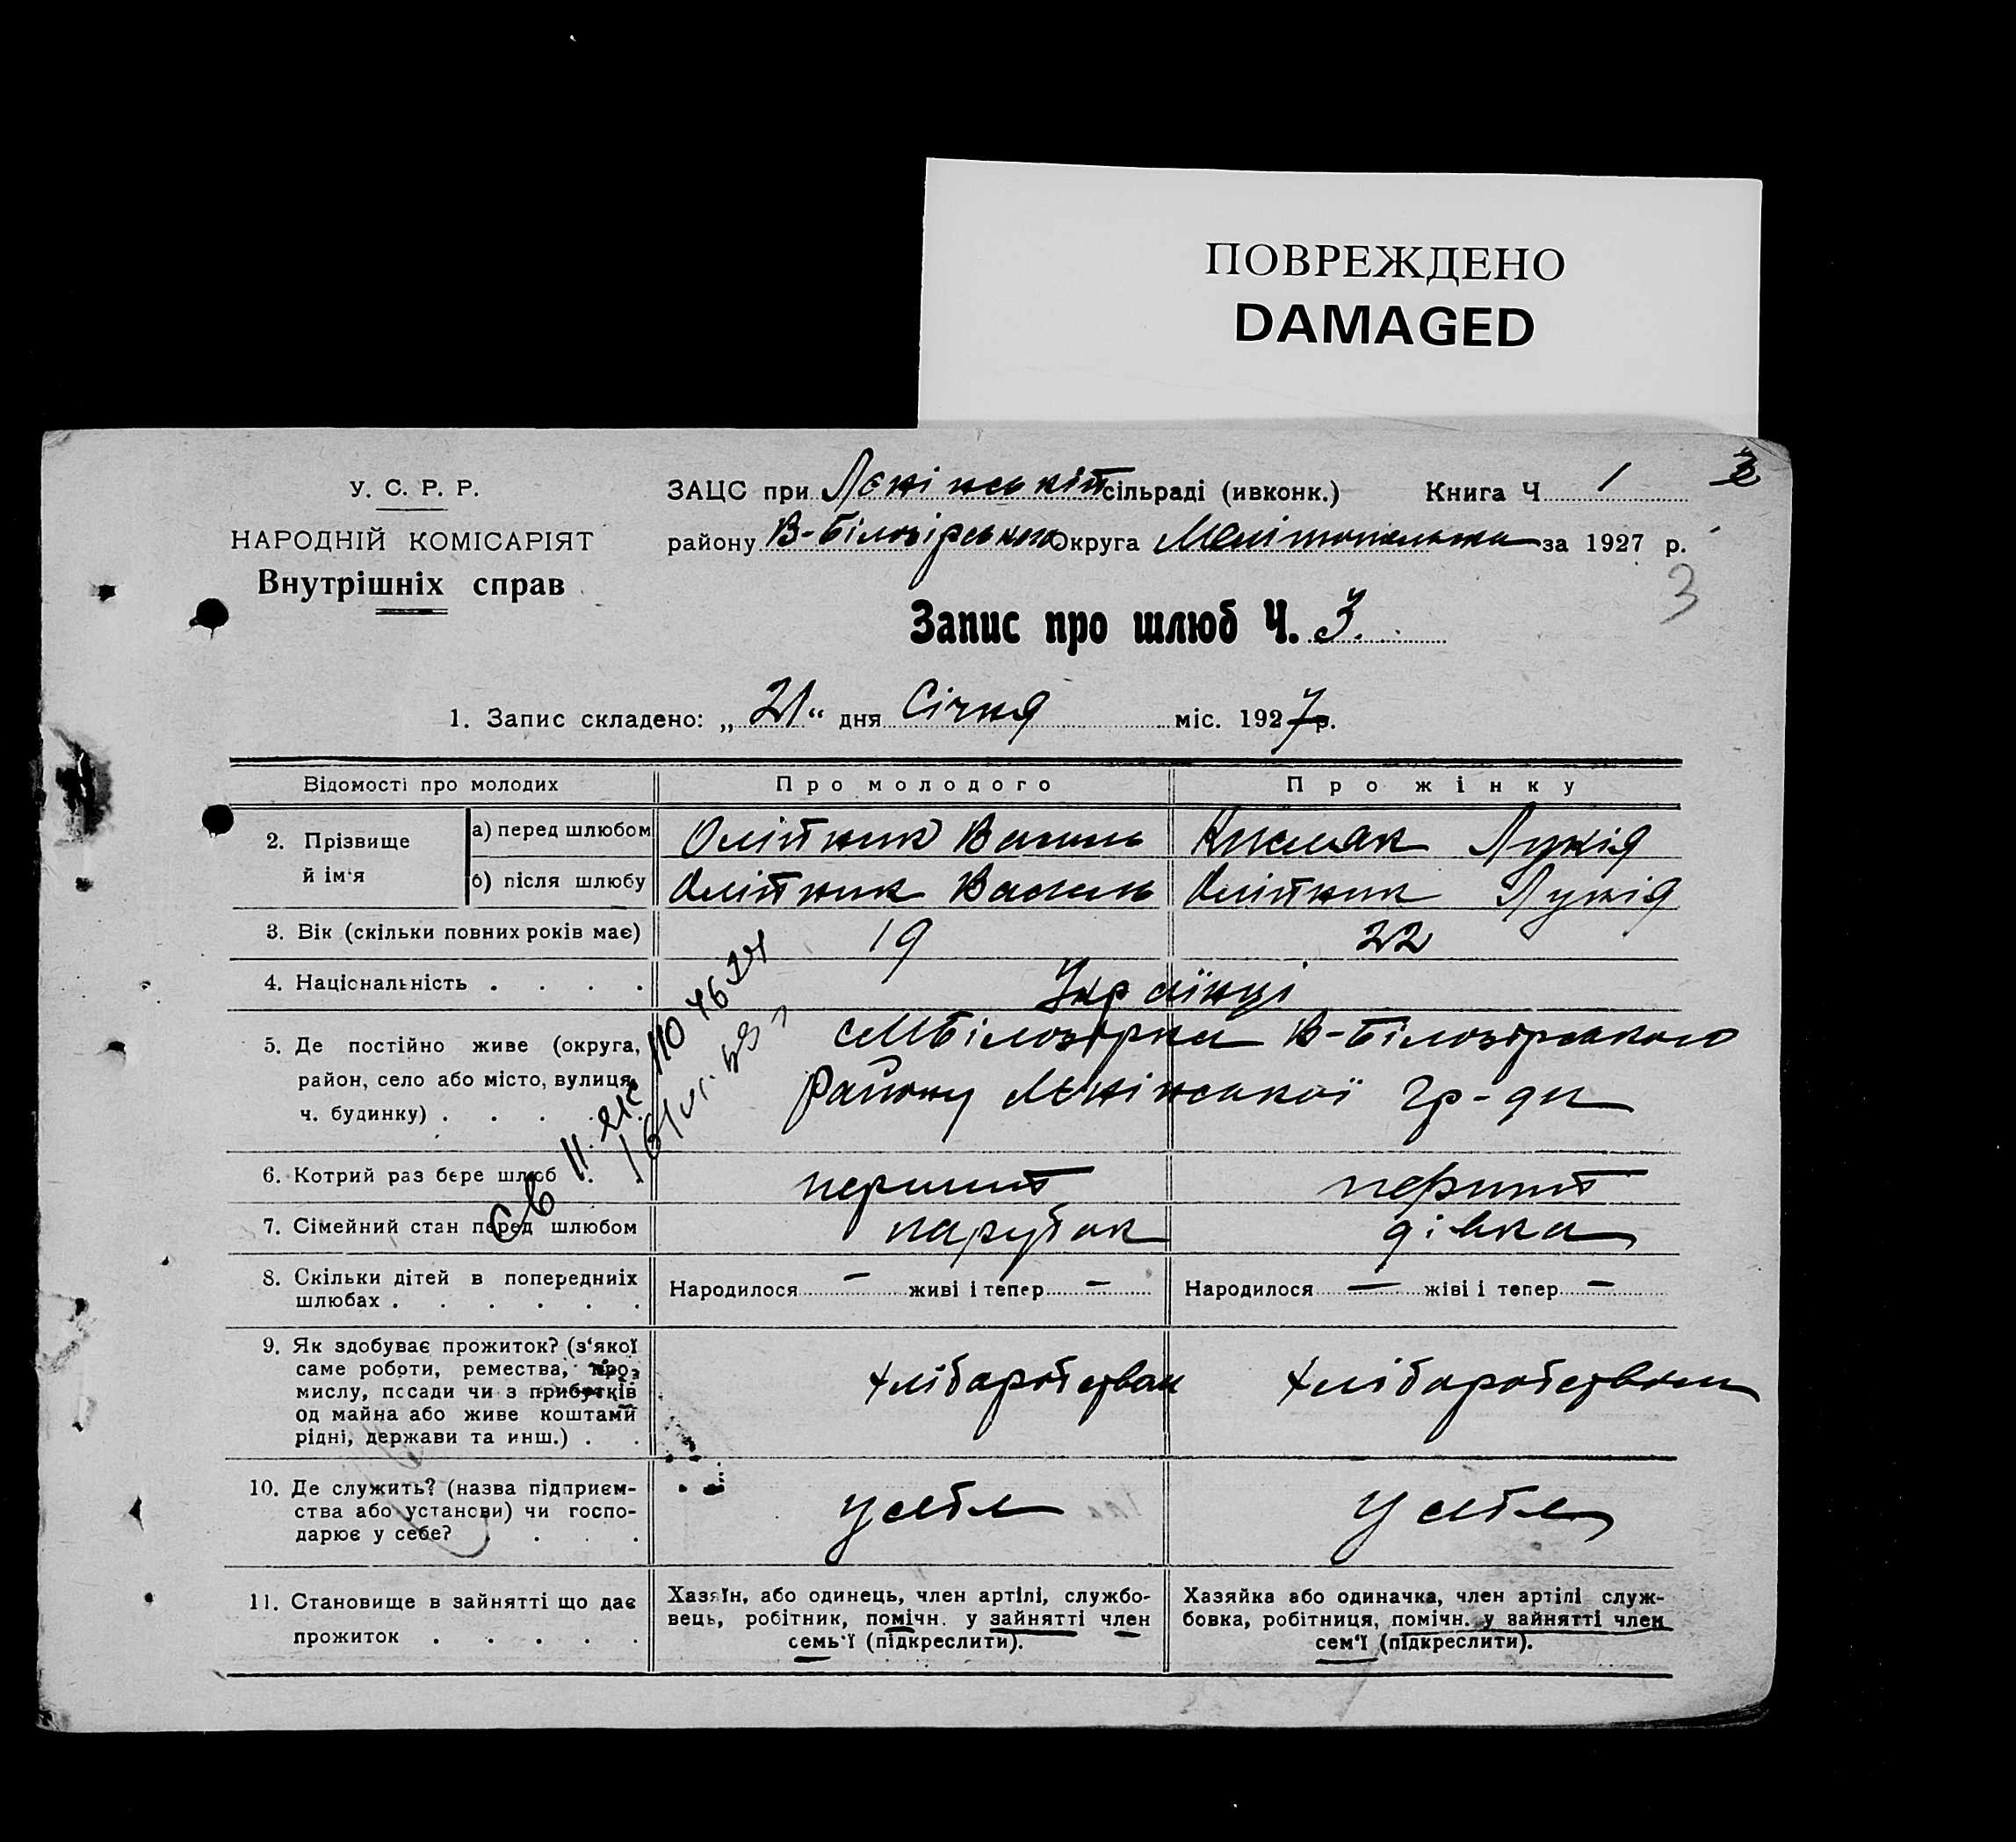 ПОВРЕЖДЕНО
DAMAGED
У. С. Р. Р.
НАРОДНІЙ КОМІСАРІЯТ
Внутрішніх справ
ЗАЦС при Ленінській сільраді (ивконк.) Книга Ч 1 3
району В-Білозірського Округа Мелітопольська за 1927 р.
3
Запис про шлюб Ч. 3.
1. Запис складено: „ 21 “ дня Січня міс. 1927 р.
Відомості про молодих Про молодого Про жінку
2. Прізвище й ім'я а) перед шлюбом Олійник Василь Кисляк Лукія
б) після шлюбу Олійник Василь Олійник Лукія
3. Вік (скільки повних років має) 19 22
4. Національність . . . . Українці
5. Де постійно живе (округа, район, село або місто, вулиця, ч. будинку) . . . с МБілозірка В-Білозірського
Району Ленінської гр-ди
6. Котрий раз бере шлюб . . перший перший
7. Сімейний стан перед шлюбом парубок дівка
8. Скільки дітей в попередниіх шлюбах . . . . . . Народилося — живі і тепер — Народилося — жіві і тепер —
9. Як здобуває прожиток? (з'якої
саме роботи, ремества, про-
мислу, посади чи з прибутків
од майна або живе коштами
рідні, держави та инш.) . . хліборобством хліборобством
10. Де служить? (назва підприєм-
ства або установи) чи госпо-
дарює у себе? . . . . у себе у себе
11. Становище в зайнятті що дає
прожиток . . . . .
Хазяїн, або одинець, член артілі, службо-
вець, робітник, помічн. у зайнятті член
семь'ї (підкреслити).
Хазяйка або одиначка, член артілі служ-
бовка, робітниця, помічн. у зайнятті член
сем'ї (підкреслити).